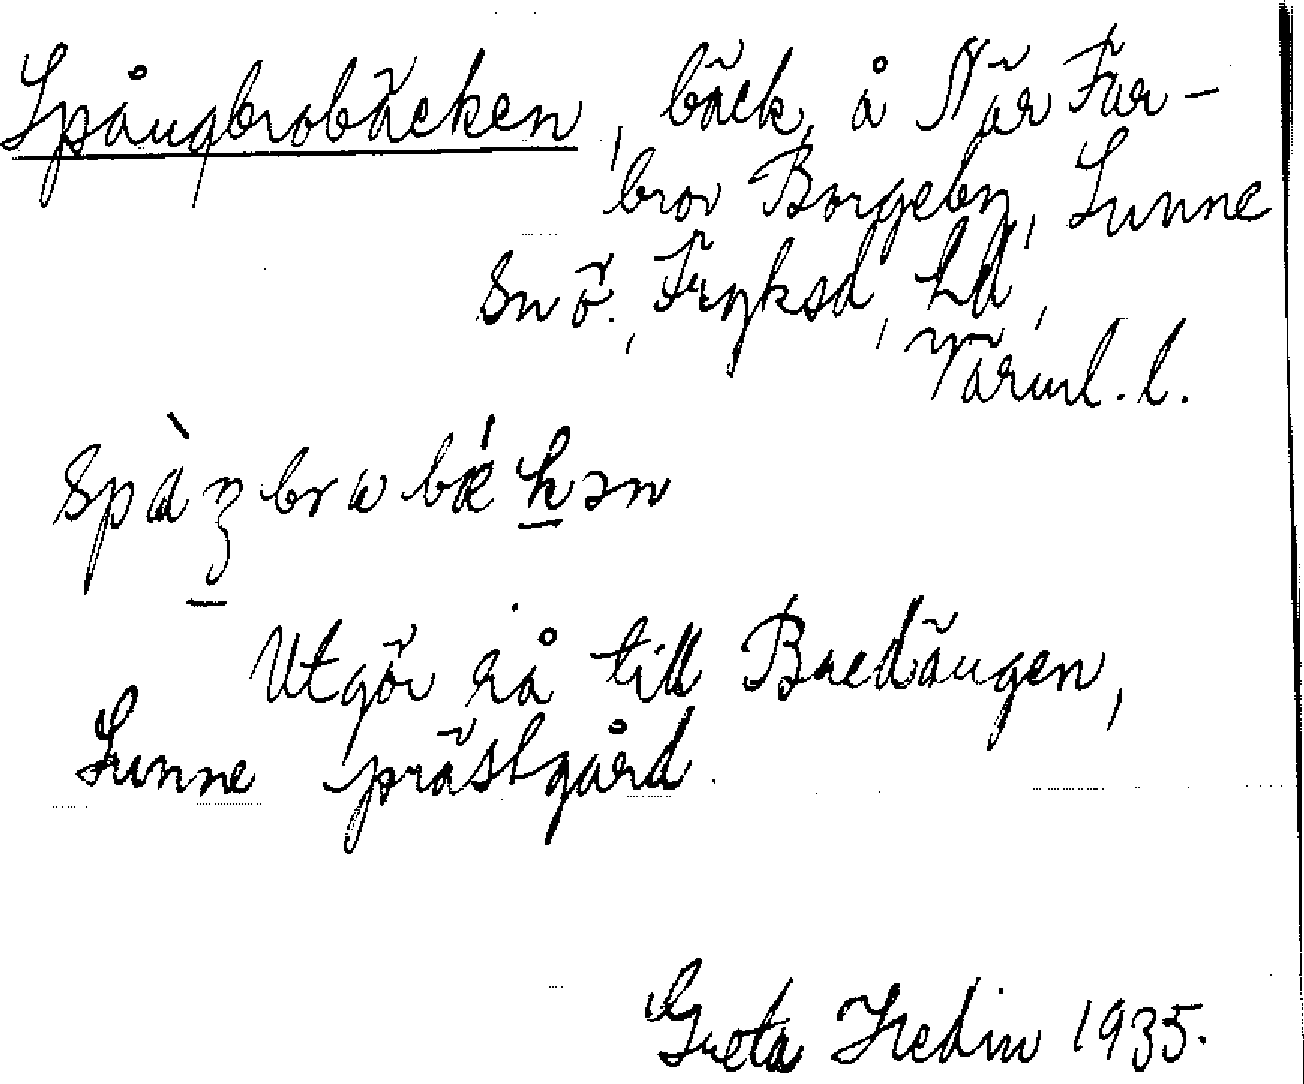 Spångbrobäcken, bäck, å När Far-
bror Borgeby, Sunne
Sn ö., Fryksd, hd,
Värml. l.
spàŋbrɷbǽkən
Utgör rå till Backängen,
Sunne prästgård.
Greta Hedin 1935.